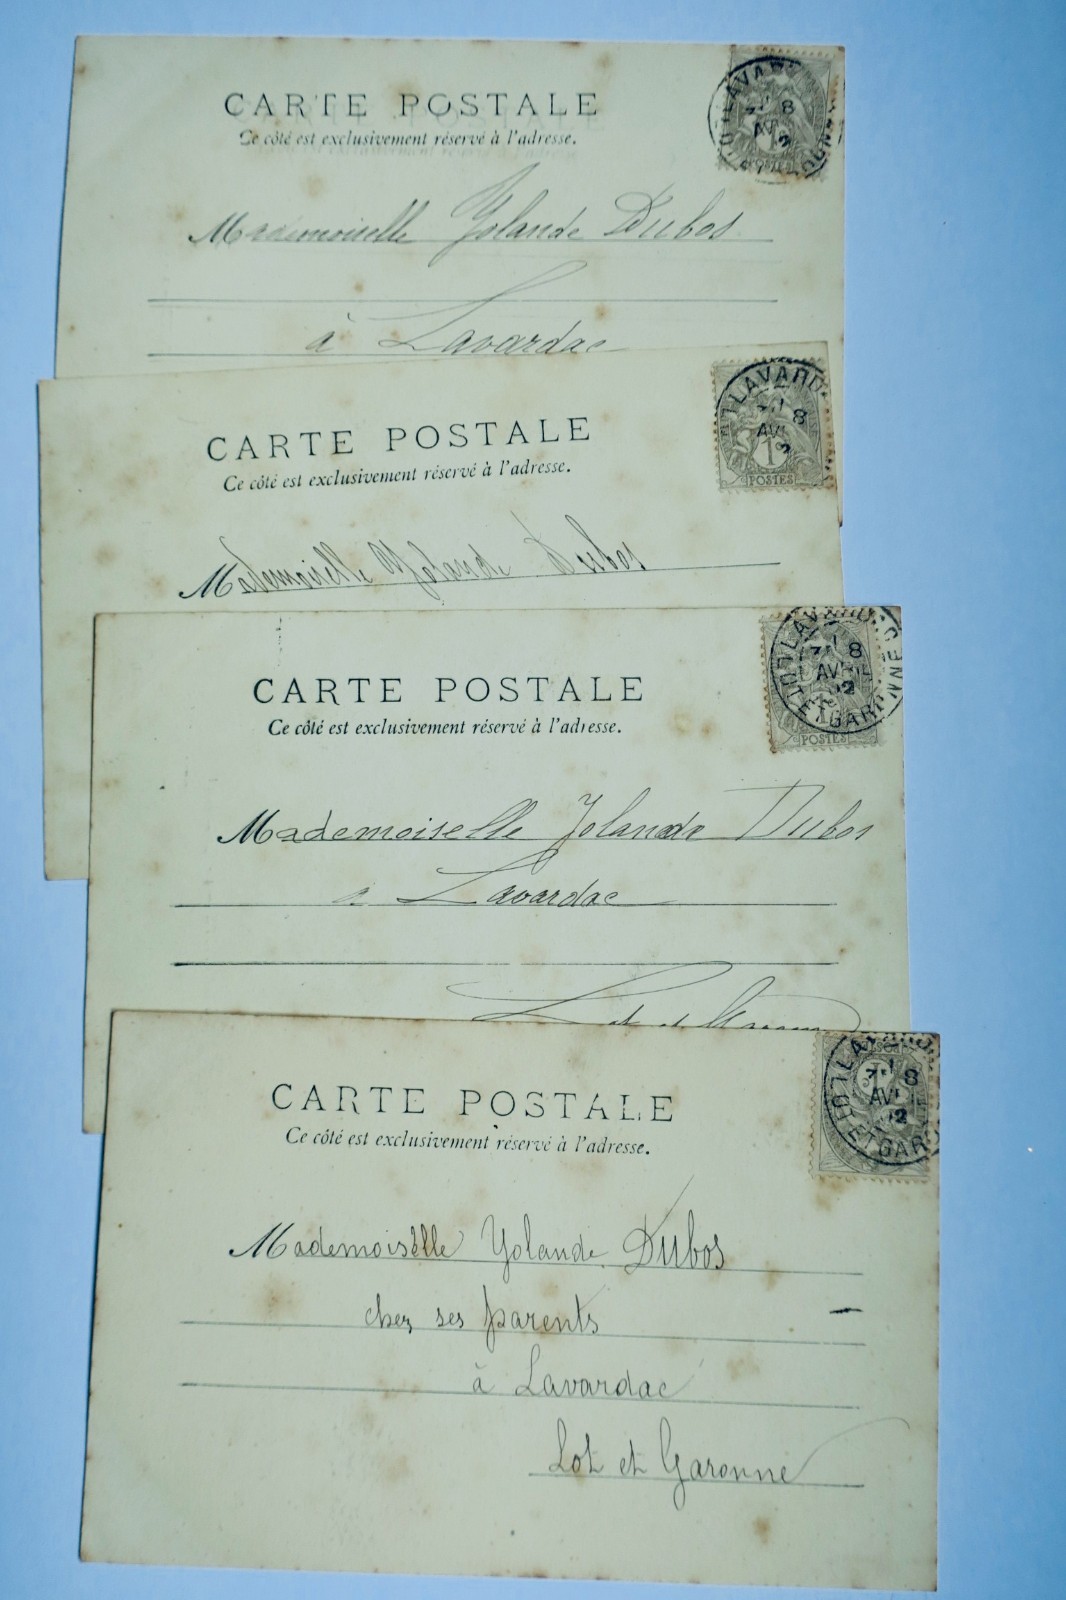 CARTE POSTALE
Ce côté est exclusivement réservé à l'adresse.
Mademoiselle Yolande Dubos
à Lavardac
CARTE POSTALE
Ce côté est exclusivement réservé à l'adresse.
LAVARD
8
AVR
POSTES
Mademoiselle Yolande Dubos
CARTE POSTALE
Ce côté est exclusivement réservé à l'adresse.
8
AVR
02
ET GARONNE
POSTES
Mademoiselle Yolande Dubos
à Lavardac
Lot et Garonne
CARTE POSTALE
Ce côté est exclusivement réservé à l'adresse.
8
AVR
02
ET GAR
Mademoiselle Yolande Dubos
chez ses parents
à Lavardac
Lot et Garonne